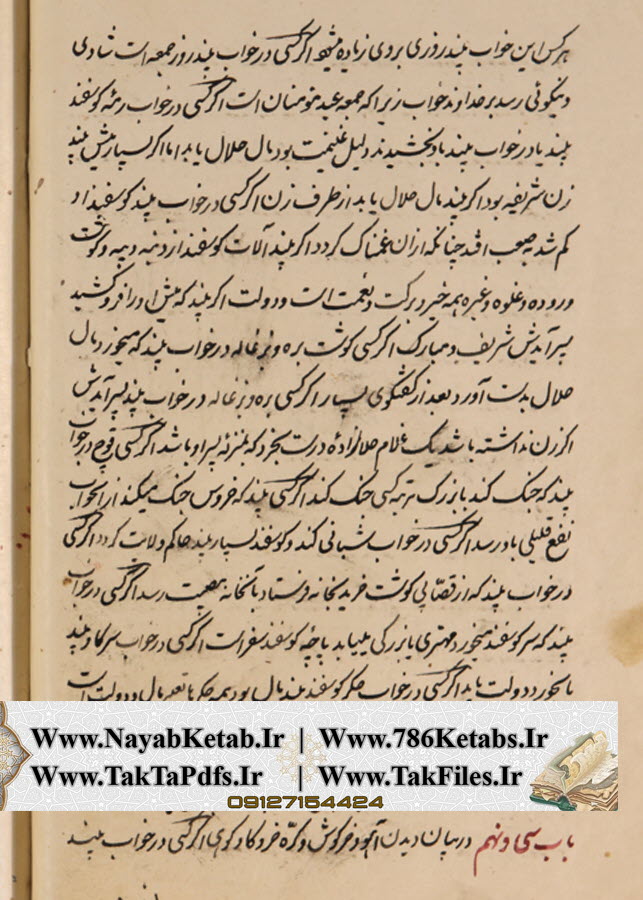 هر کس این خواب بیند روزی بر وی زیاده میشود اگر کسی در خواب بیند روز جمعه است شادی
و نیکوئی رسد بر خداوند خواب زیرا که جمعه عید مومنان است اگر کسی در خواب رمه گوسفند
بیند یا در خواب بیند باو بخشیدند دلیل غنیمت بود مال حلال یابد اما اگر بسیار میش بیند
زن شریفه بود اگر بیند مال حلال یابد از طرف زن اگر کسی در خواب بیند گوسفند او
کم شد به صعب افتد چنانکه از ان غمناک گردد اگر بیند آلات گوسفند از دنبه و پیه و گوشت
و روده و غلوه و غیره همه خیر و برکت و نعمت است و دولت اگر بیند که میش او را فرو کشید
پسر آیدش شریف و مبارک اگر کسی گوشت بره و بزغاله در خواب بیند که میخورد مال
حلال بدست آورد بعد از گفتگوی بسیار اگر کسی بره و بزغاله در خواب بیند پسر آیدش
اگر زن نداشته باشد یک غلام حلالزاده درست بخرد که بمنزله پسر او باشد اگر کسی قوچ در خواب
بیند که جنگ کند با بزرگ مرتبه کسی جنگ کند اگر کسی بیند که خروس جنگ میکند از انخواب
نفع قلیلی باو رسد اگر کسی در خواب شبانی کند و گوسفند بسیار بیند حاکم ولایت گردد اگر کسی
در خواب بیند که از قصابی گوشت خرید بخانه فرستاد بآنخانه مصیبت رسد اگر کسی در خواب
بیند که سر گوسفند میخورد مهتری یا بزرگی مییابد پاچه گوسفند سفر است اگر کسی در خواب سر گاو بیند
یا بخورد دولت یابد اگر کسی در خواب جگر گوسفند بیند مال بود همه جگرها تعبیر مال و دولت است
Www.NayabKetab.Ir | Www.786Ketabs.Ir
Www.TakTaPdfs.Ir | Www.TakFiles.Ir
09127154424
باب سی و نهم در بیان دیدن آهو و خرگوش و کره خر و گاو کوهی اگر کسی در خواب بیند